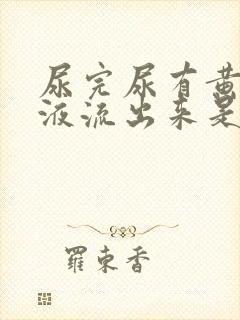 尿完尿有黄
液流出来是
羅東香